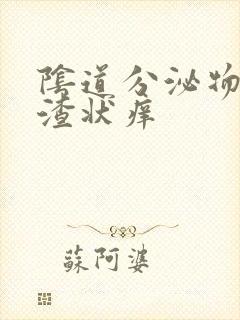 陰道分泌物
渣状痒
蘇阿婆